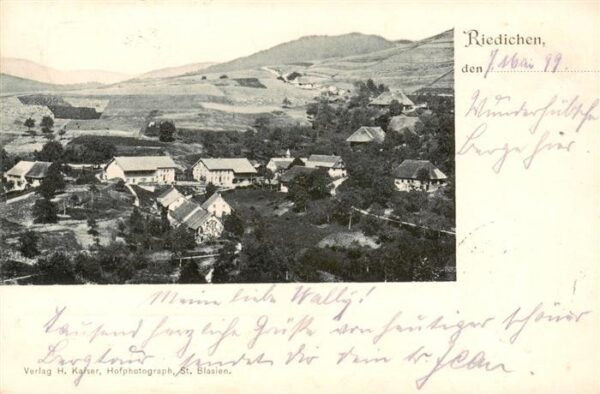 Riedichen,
den 7 Mai 99
Wunderhübsche
Berge hier
Meine liebe Wally!
Tausend herzliche Grüße von heutiger schöner
Bergtour sendet dir dein tr
Verlag H. Kaiser, Hofphotograph, St. Blasien.